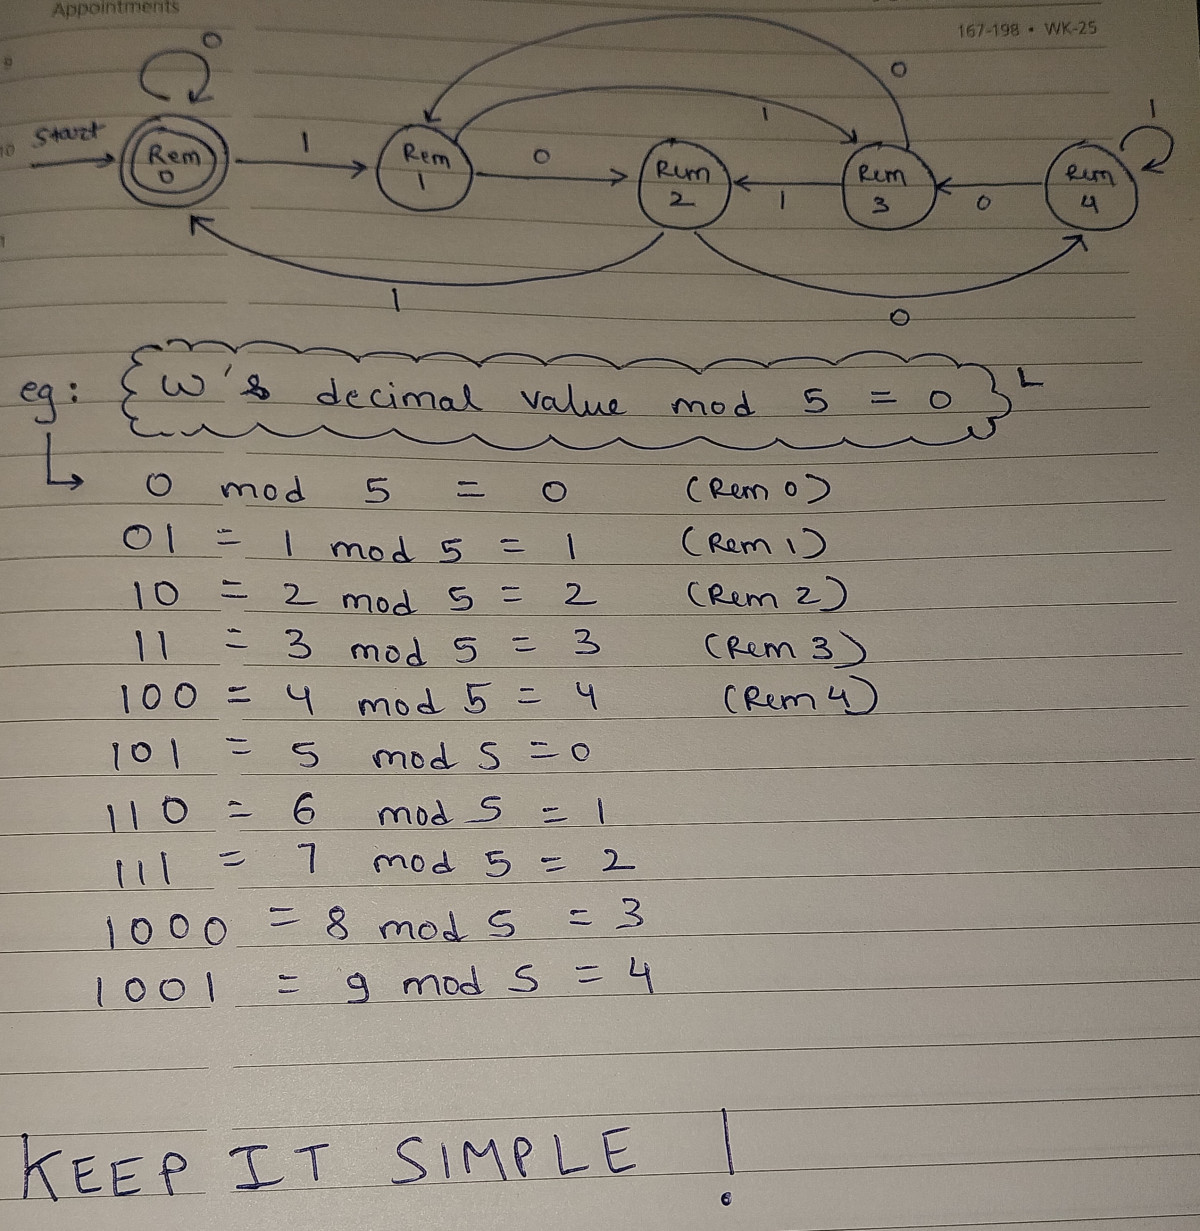 Appointments
167-198 • WK-25
9
10
1
0
0
start
Rem
0
1
Rem
1
0
1
Rem
2
1
Rem
3
0
Rem
4
1
1
0
eg: { W's decimal value mod 5 = 0 } L
0 mod 5 = 0 (Rem 0)
01 = 1 mod 5 = 1 (Rem 1)
10 = 2 mod 5 = 2 (Rem 2)
11 = 3 mod 5 = 3 (Rem 3)
100 = 4 mod 5 = 4 (Rem 4)
101 = 5 mod 5 = 0
110 = 6 mod 5 = 1
111 = 7 mod 5 = 2
1000 = 8 mod 5 = 3
1001 = 9 mod 5 = 4
KEEP IT SIMPLE !